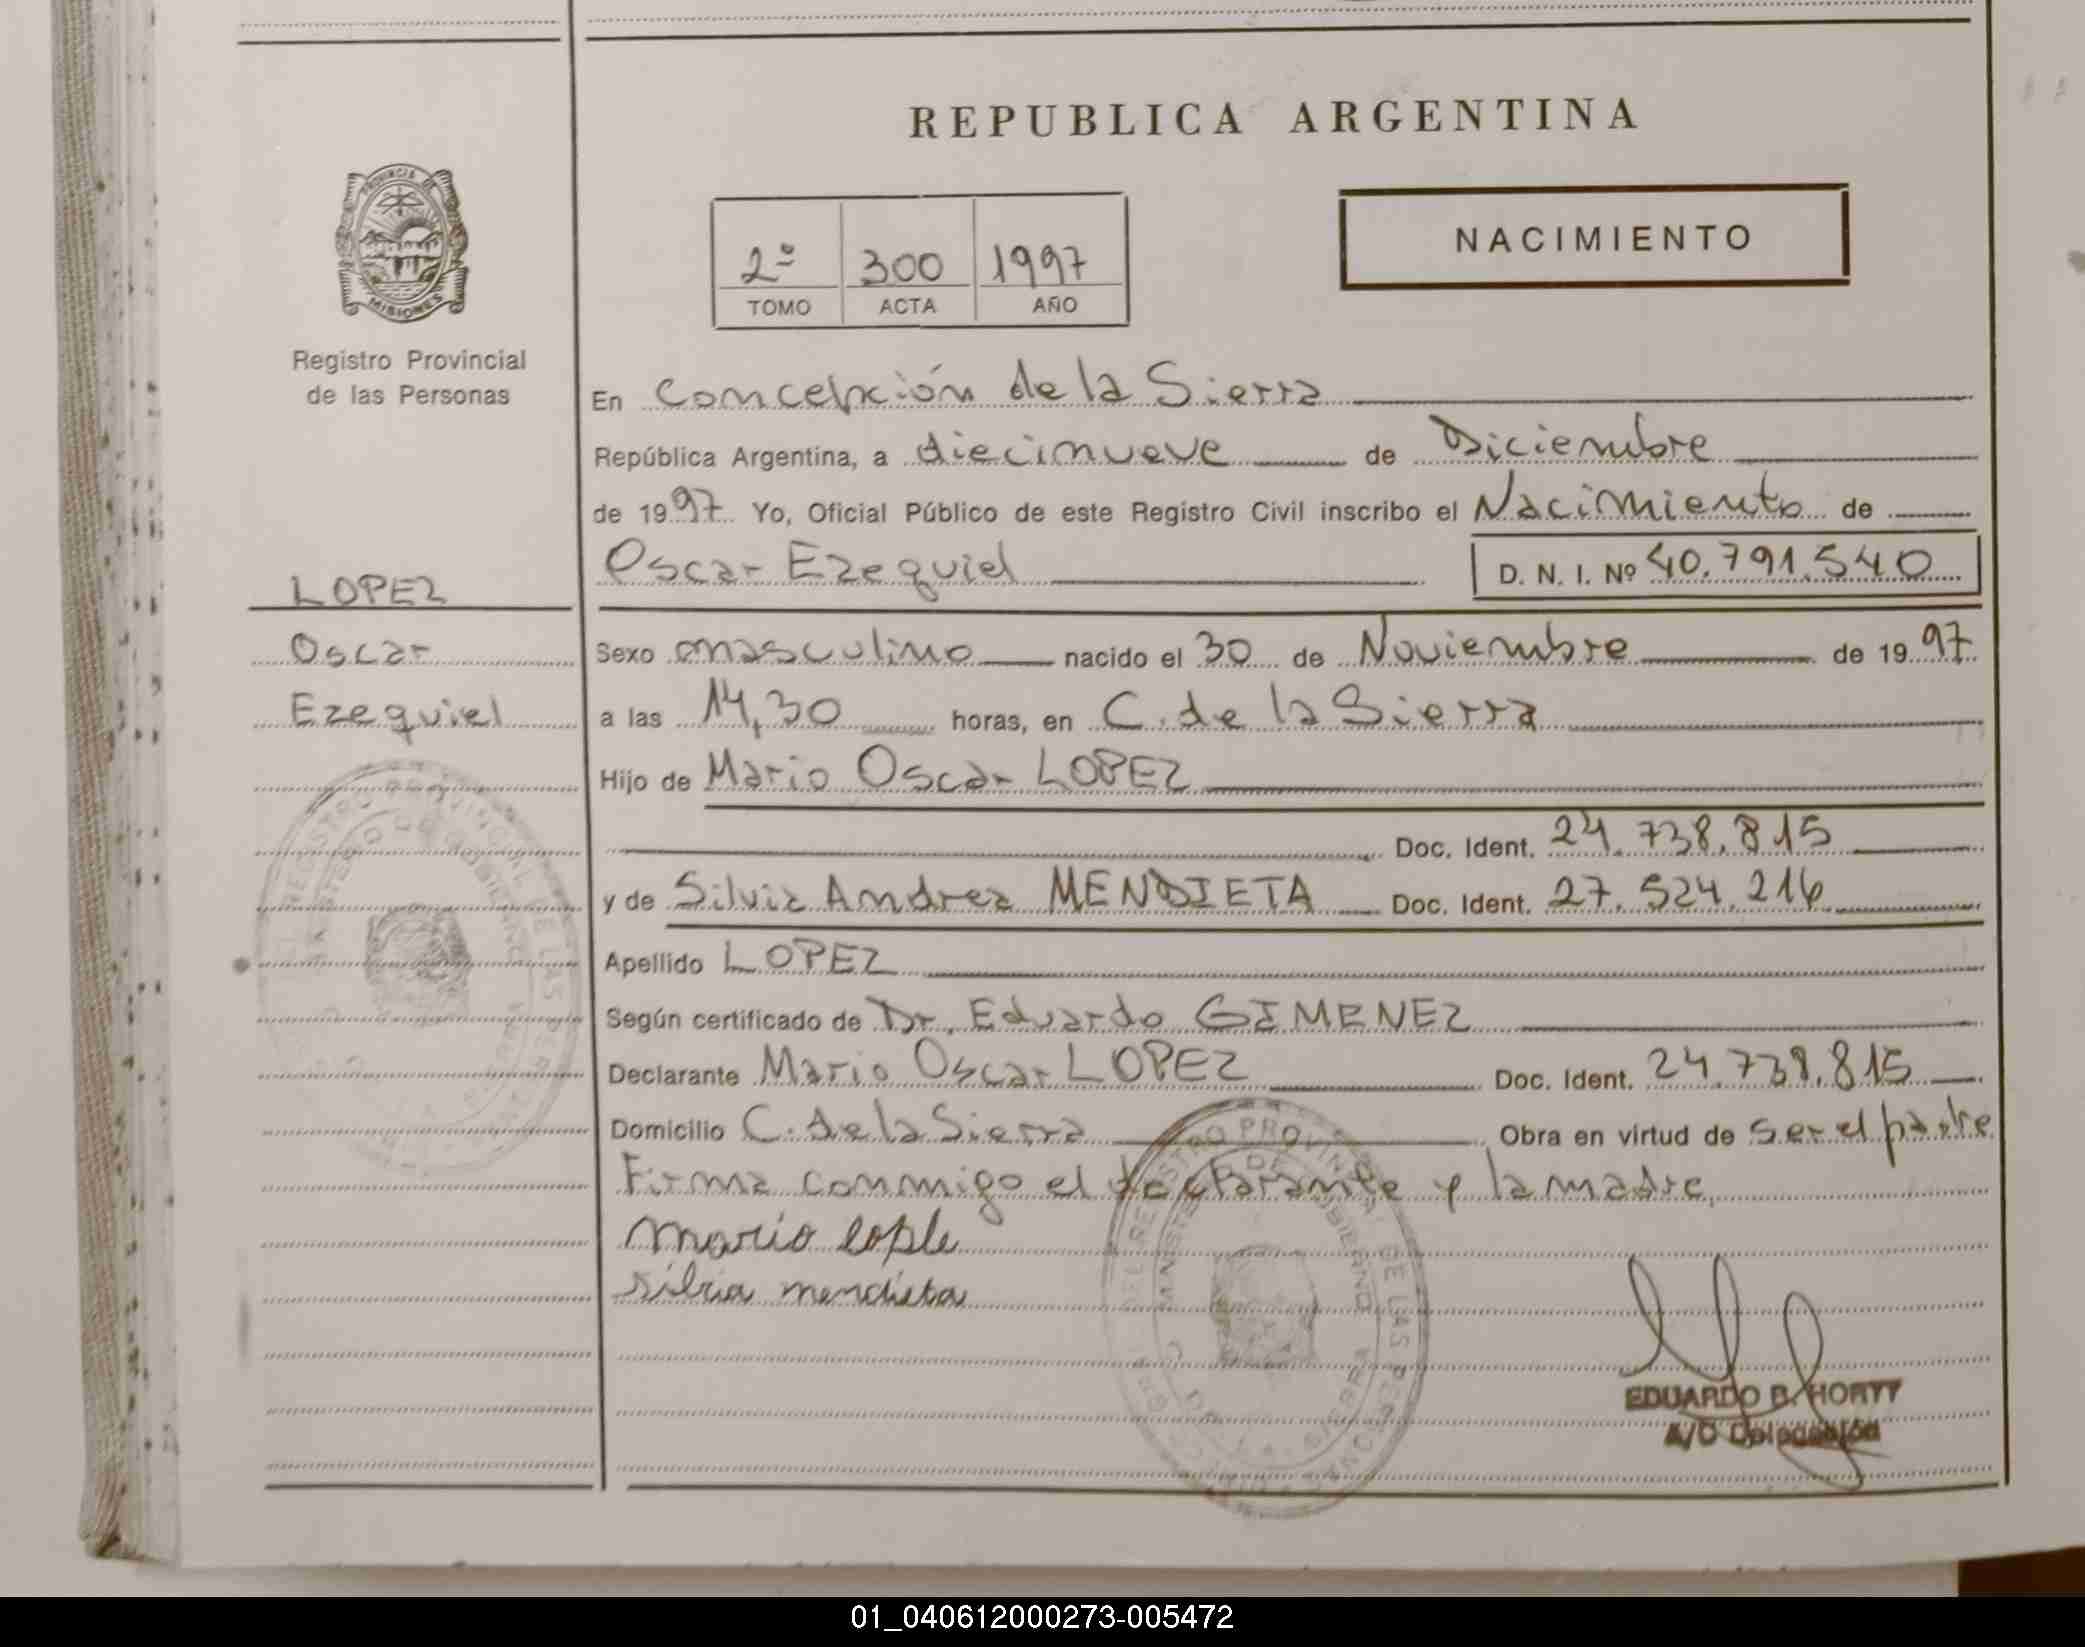 REPUBLICA ARGENTINA
PROVINCIA DE
MISIONES
Registro Provincial
de las Personas
2º 300 1997
TOMO ACTA AÑO
NACIMIENTO
En Concepción de la Sierra
República Argentina, a diecinueve de Diciembre
de 1997 Yo, Oficial Público de este Registro Civil inscribo el Nacimiento de
Oscar Ezequiel D. N. I. Nº 40.791.540
LOPEZ
Oscar
Ezequiel
Sexo masculino nacido el 30 de Noviembre de 1997
a las 14,30 horas, en C. de la Sierra
Hijo de Mario Oscar LOPEZ
Doc. Ident. 24.738.815
y de Silvia Andrea MENDIETA Doc. Ident. 27.524.216
Apellido LOPEZ
Según certificado de Dr. Eduardo GIMENEZ
Declarante Mario Oscar LOPEZ Doc. Ident. 24.738.815
Domicilio C. de la Sierra Obra en virtud de ser el padre
Firma conmigo el declarante y la madre.
mario lople
silvia mendieta
EDUARDO B. HORTT
A/C Delegación
01_040612000273-005472